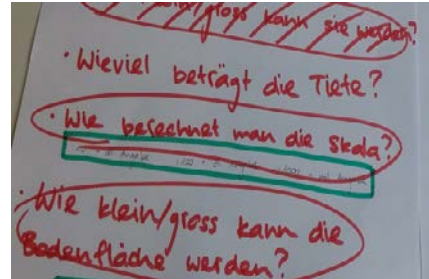 klein/gross kann sie werden?
• Wieviel beträgt die Tiete?
• Wie berechnet man die Skala?
• Wie klein/gross kann die
Bodenfläche werden?